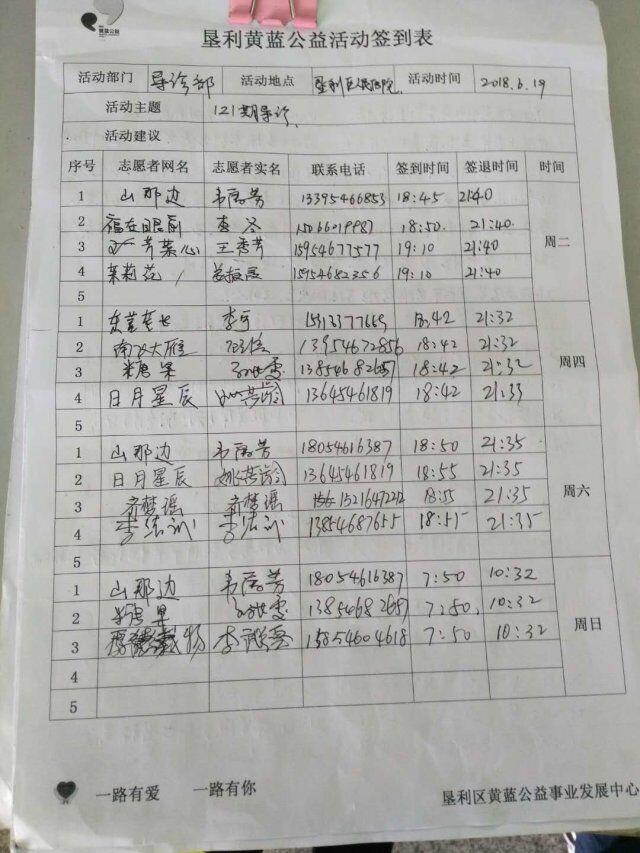 黄蓝公益
垦利黄蓝公益活动签到表
活动部门 导诊部 活动地点 垦利区人民医院 活动时间 2018.6.19
活动主题 121期导诊
活动建议
序号 志愿者网名 志愿者实名 联系电话 签到时间 签退时间 时间
1 山那边 韦房芳 13395466853 18:45 21:40
2 福在眼前 18:50 21:40
3 芹菜心 王秀芹 15954677577 19:10 21:40
4 茉莉花 15954682356 19:10 21:40
5
周二
1 李可 15313377669 18:42 21:32
2 南飞大雁 13954672856 18:42 21:32
3 糖果 13854682687 18:42 21:32
4 日月星辰 姚芳龄 13645461819 18:42 21:33
5
周四
1 山那边 韦房芳 18054616387 18:50 21:35
2 日月星辰 姚芳龄 13645461819 18:55 21:35
3 齐梦瑶 齐梦瑶 18:55 21:35
4 13854687655 18:55 21:35
5
周六
1 山那边 韦房芳 18054616387 7:50 10:32
2 糖果 13854682687 7:50 10:32
3 15854604618 7:50 10:32
4
5
周日
一路有爱 一路有你
垦利区黄蓝公益事业发展中心